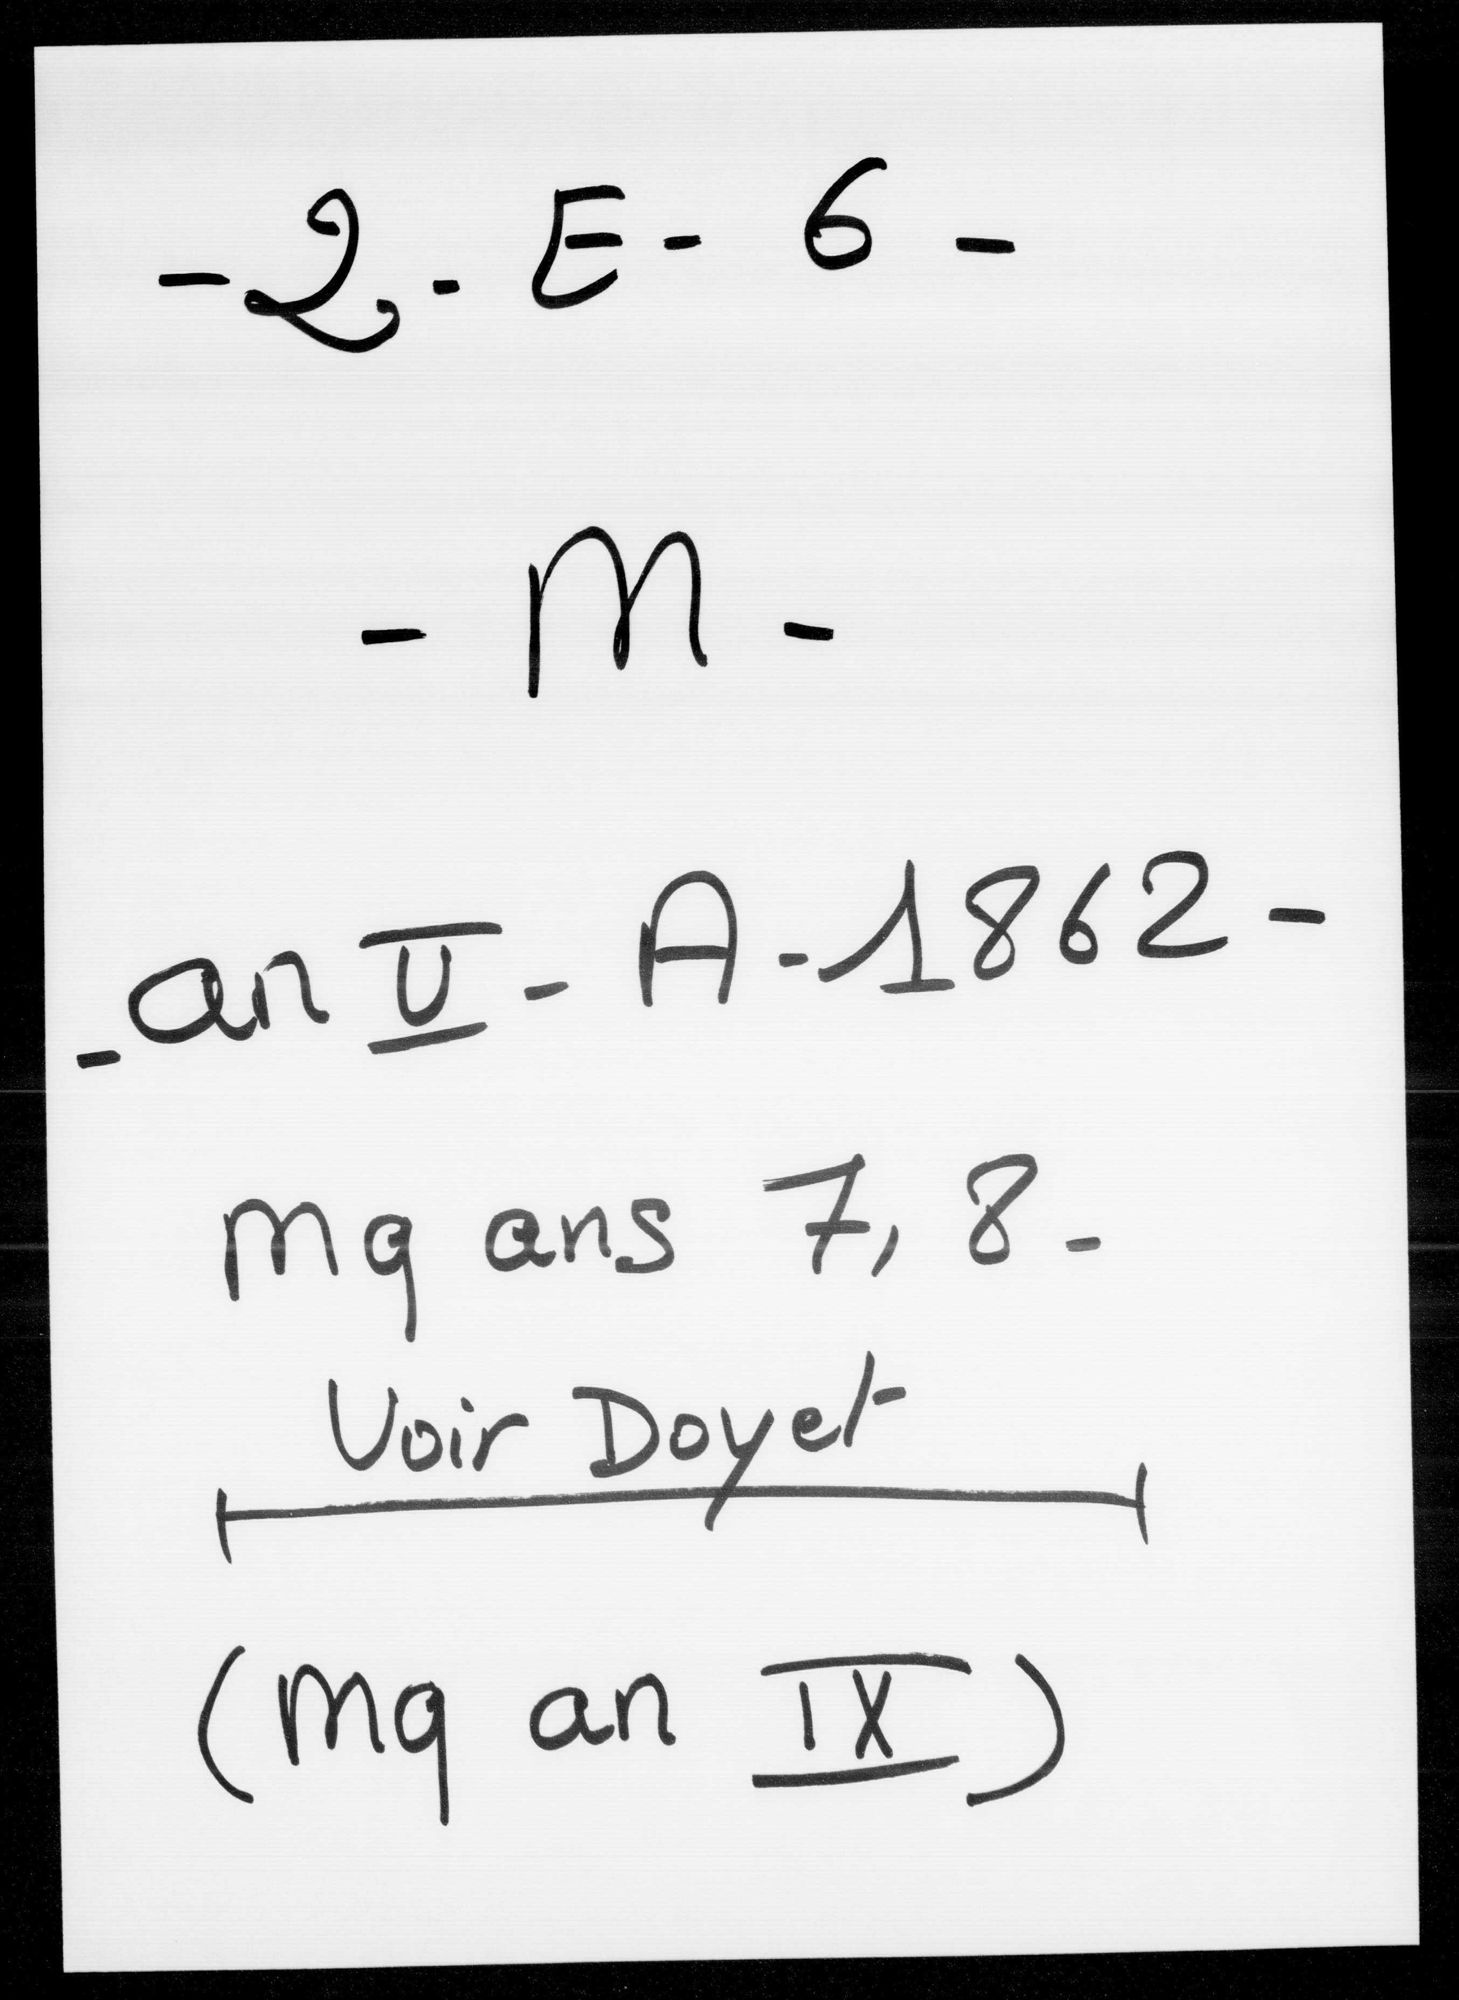 - 2. - E - 6 -
- M -
- an V - A - 1862 -
mq ans 7, 8 -
Voir Doyet
(mq an IX)